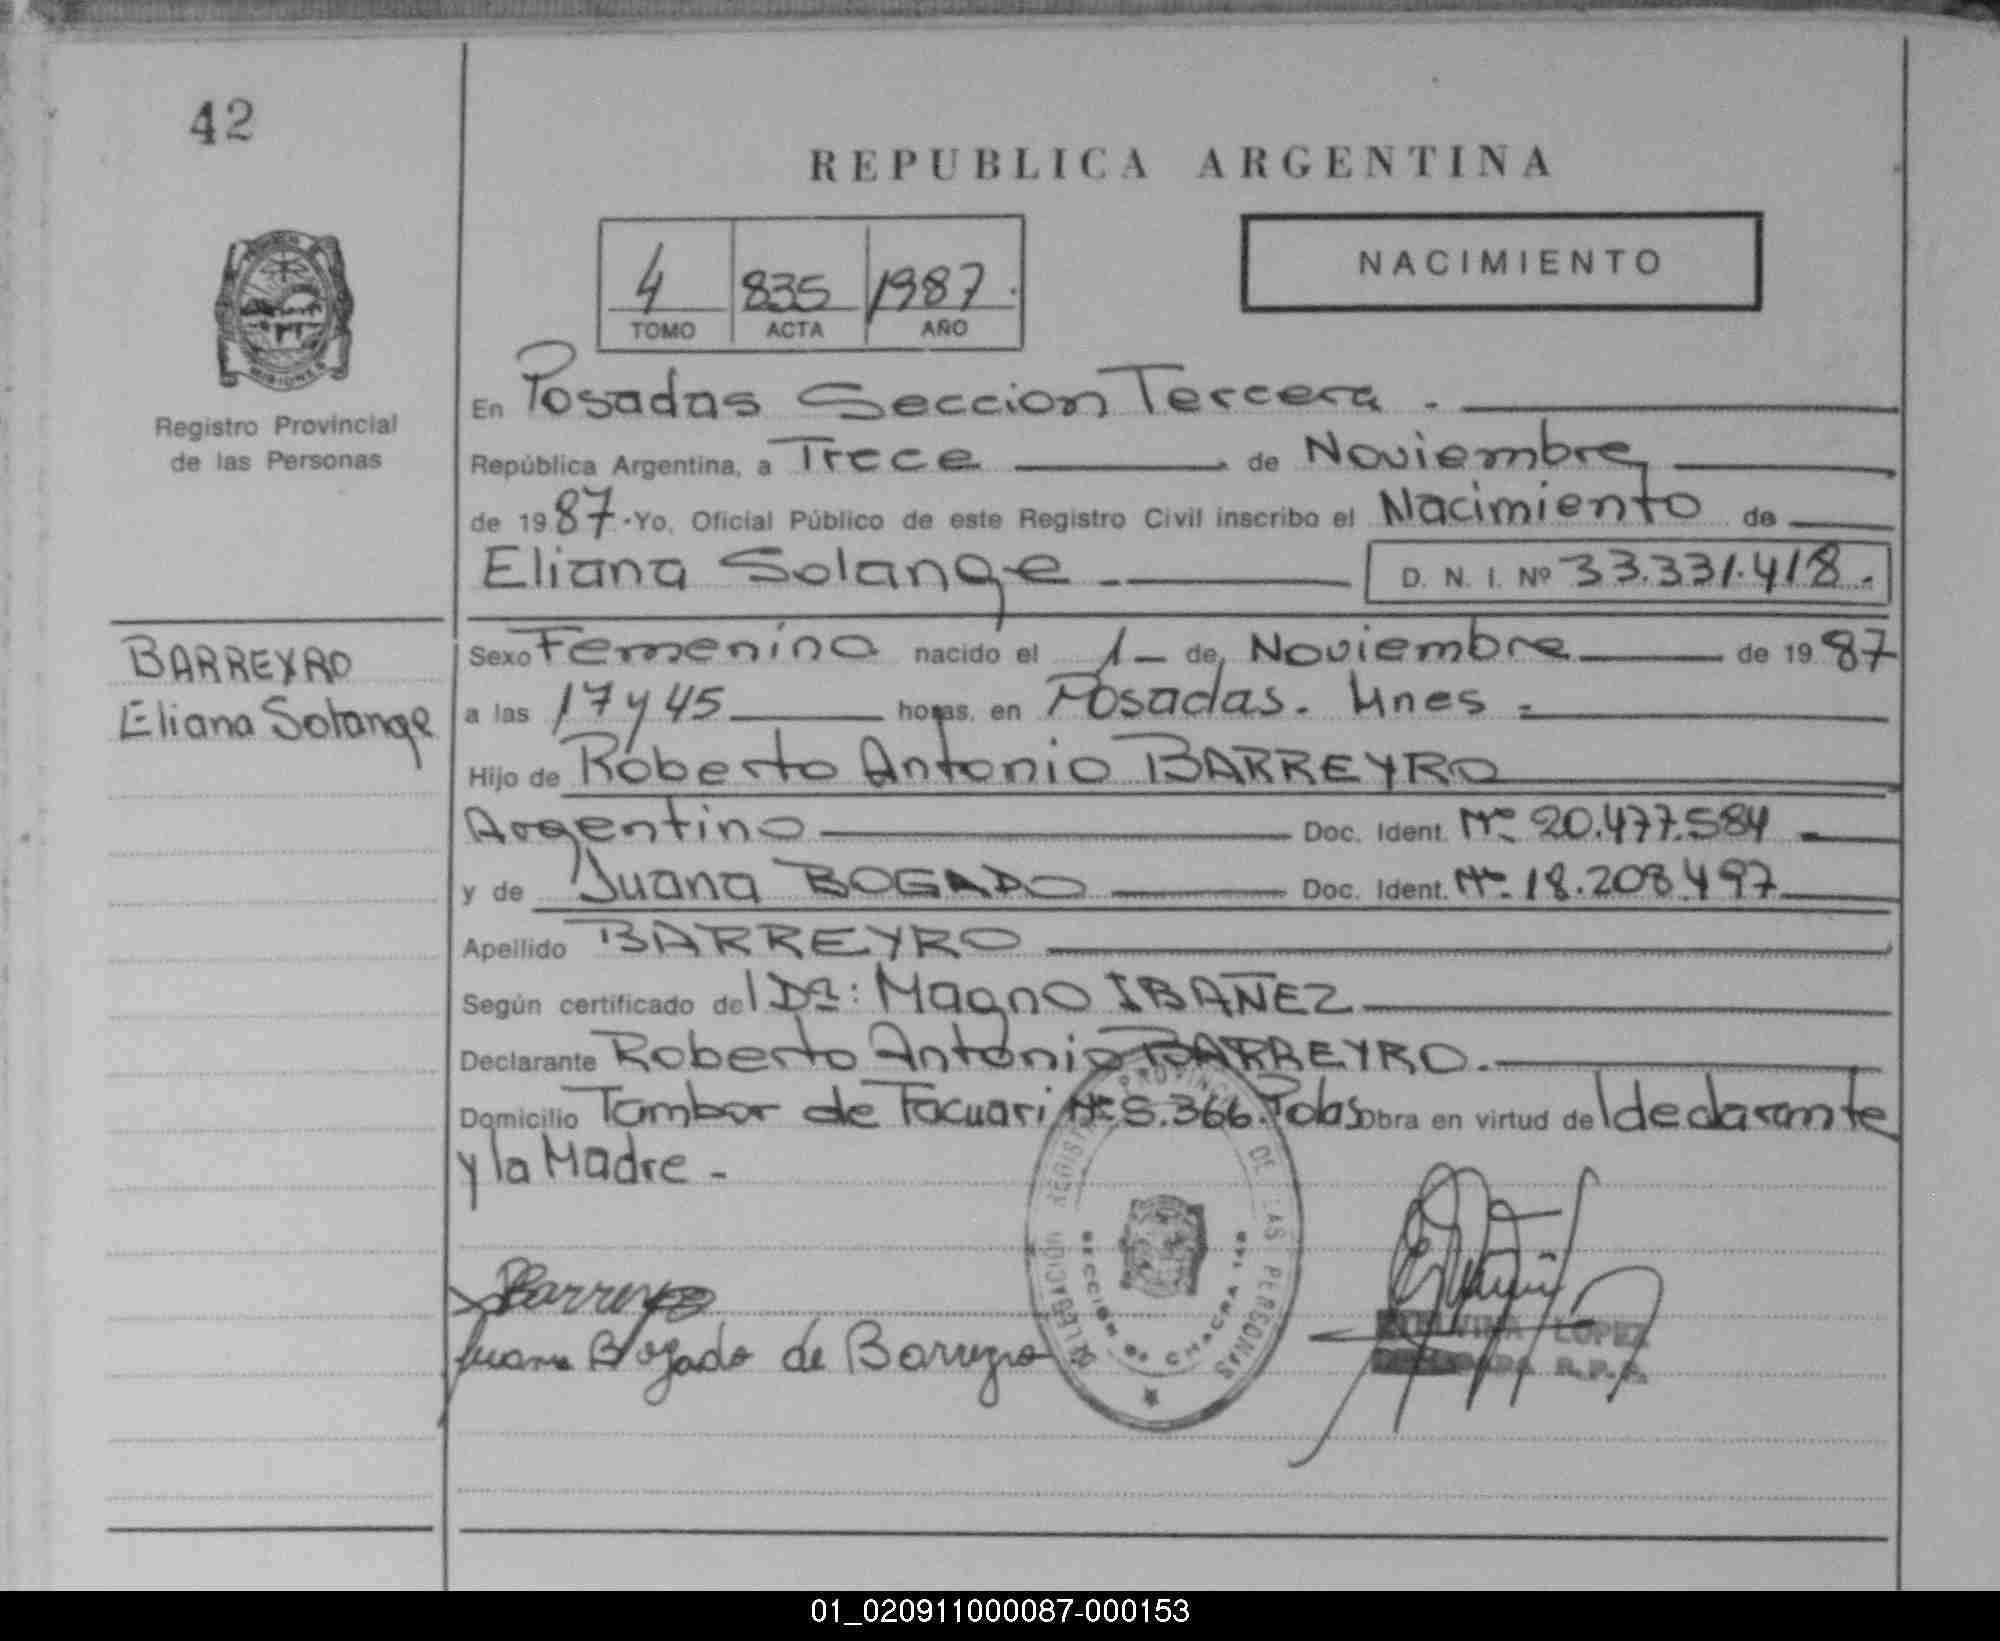 42
REPUBLICA ARGENTINA
4 835 1987.
TOMO ACTA AÑO
NACIMIENTO
MISIONES
Registro Provincial
de las Personas
En Posadas Seccion Tercera.
República Argentina, a Trece de Noviembre
de 1987.-Yo, Oficial Público de este Registro Civil inscribo el Nacimiento de
Eliana Solange - D. N. I. Nº 33.331.418.
BARREYRO
Eliana Solange
Sexo Femenino nacido el 1- de Noviembre de 1987
a las 17 y 45 horas, en Posadas. Mnes -
Hijo de Roberto Antonio BARREYRO
Argentino Doc. Ident. Nº 20.477.584
y de Juana BOGADO Doc. Ident. Nº 18.208.497
Apellido BARREYRO
Según certificado del Dr: Magno IBAÑEZ
Declarante Roberto Antonio BARREYRO.
Domicilio Tambor de Tacuari Nº S.366. Pdas Obra en virtud del declarante
y la Madre -
DELEGACION REGISTRO PROVINCIAL DE LAS PERSONAS
SECCION CHACRA
Barreyro
Juana Bogado de Barreyro
LOPEZ
R.P.P.
01_020911000087-000153